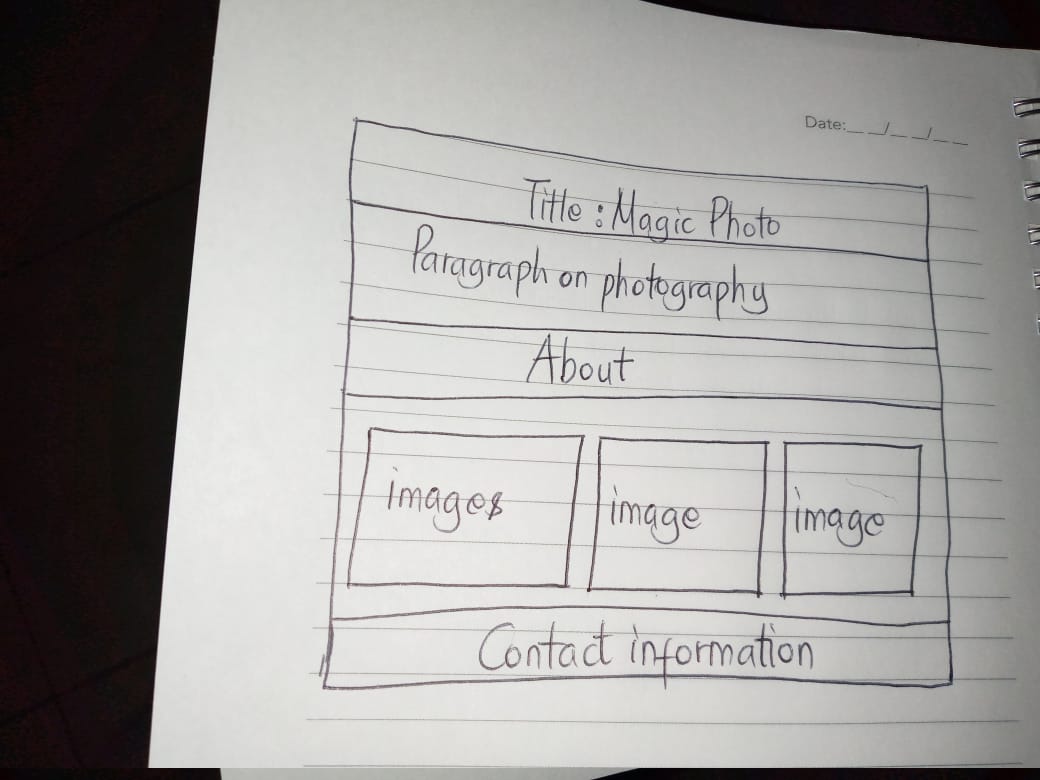 Date:__/__/__
Title : Magic Photo
Paragraph on photography
About
images
image
image
Contact information